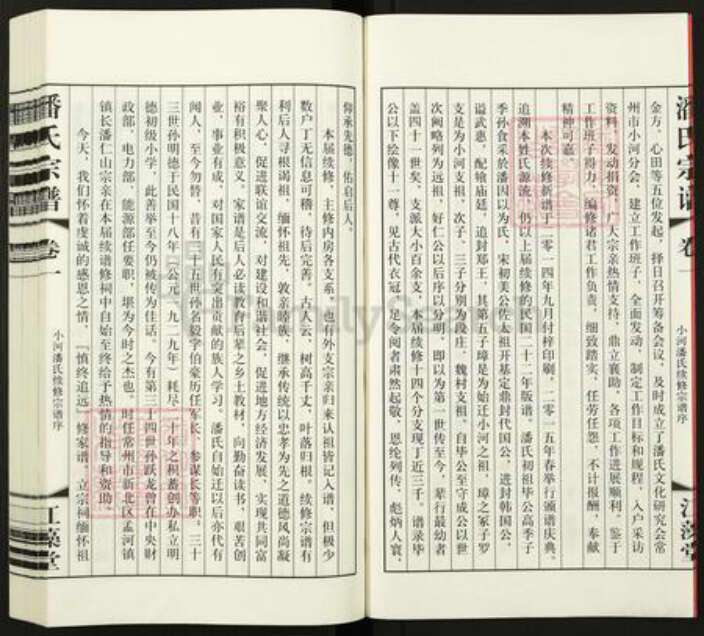 潘氏宗谱
卷一
小河潘氏续修宗谱序
江藻堂
金方、心田等五位发起，择日召开筹备会议，及时成立了潘氏文化研究会常
州市小河分会，建立工作班子，全面发动，制定工作目标和规程，入户采访
资料，发动捐资，广大宗亲热情支持、鼎立襄助，各项工作进展顺利。鉴于
工作班子得力，编修诸君工作负责，细致踏实，任劳任怨，不计报酬，奉献
精神可嘉。
本次续修新谱于二零一四年九月付梓印刷，二零一五年春举行颁谱庆典。
追溯本姓氏源流，仍以上届续修的民国二十二年版谱。潘氏初祖毕公高季子
季孙食采於潘因以为氏，宋初美公佐太祖开基定鼎封代国公，进封韩国公，
谥武惠，配飨庙廷，追封郑王，其第五子璋是为始迁小河之祖，璋之冢子罗
支是为小河支祖，次子、三子分别为段庄、魏村支祖。自毕公至守成公以世
次阙略列为远祖，好仁公以后序以分明，即以为第一世传至今，辈行最幼者
盖四十一世矣，支派大小百余支，本届续修十四个分支现丁近三千。谱录毕
公以下绘像十一尊，见古代衣冠，足令阅者肃然起敬，恩纶列传，彪炳人寰，
仰承先德，佑启后人。
本届续修，主修内房各支系，也有外支宗亲归来认祖皆记入谱，但极少
数户丁无信息可稽，待后完善。古人云，树高千丈，叶落归根。续修宗谱有
利后人寻根谒祖，缅怀祖先，敦亲睦族，继承传统以忠孝为先之道德风尚凝
聚人心，促进联谊交流，对建设和谐社会，促进地方经济发展，实现共同富
裕有积极意义。家谱是后人必读教育后辈之乡土教材，向勤奋读书，艰苦创
业，事业有成，对国家人民有突出贡献的族人学习。潘氏自始迁以后亦代有
闻人，至今勿替，昔有三十五世孙名毅字伯豪历任军长、参谋长等职。三十
三世孙明德于民国十八年（公元一九二九年）耗尽二十年之积蓄创办私立明
德初级小学，此善举至今仍被传为佳话，今有第三十四世孙跃龙曾在中央财
政部、电力部、能源部任要职，堪为今时之杰也。时任常州市新北区孟河镇
镇长潘仁山宗亲在本届续谱修祠中自始至终给予热情的指导和资助。
今天，我们怀着虔诚的感恩之情，「慎终追远」修家谱，立宗祠缅怀祖
潘氏宗谱
卷一
小河潘氏续修宗谱序
江藻堂
FamilySearch